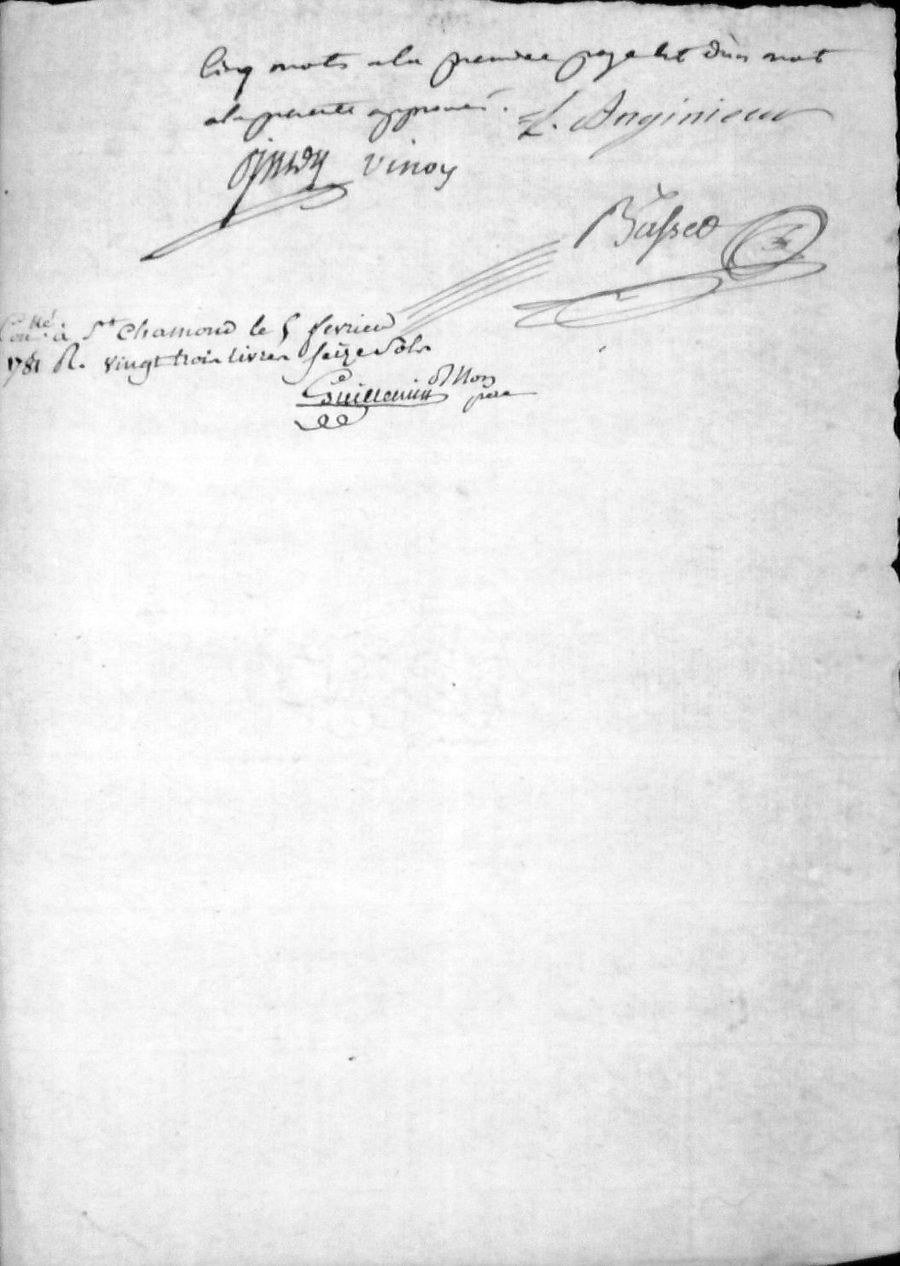 Cinq mots a la premiere page et d'un mot
a la presente approuvés.
L. Anginieur
Vinoy
Basset
Con.tlé. a St Chamond le 5 fevrier
1781 R. vingt trois livres seize sols
Guillemin Mon
pere